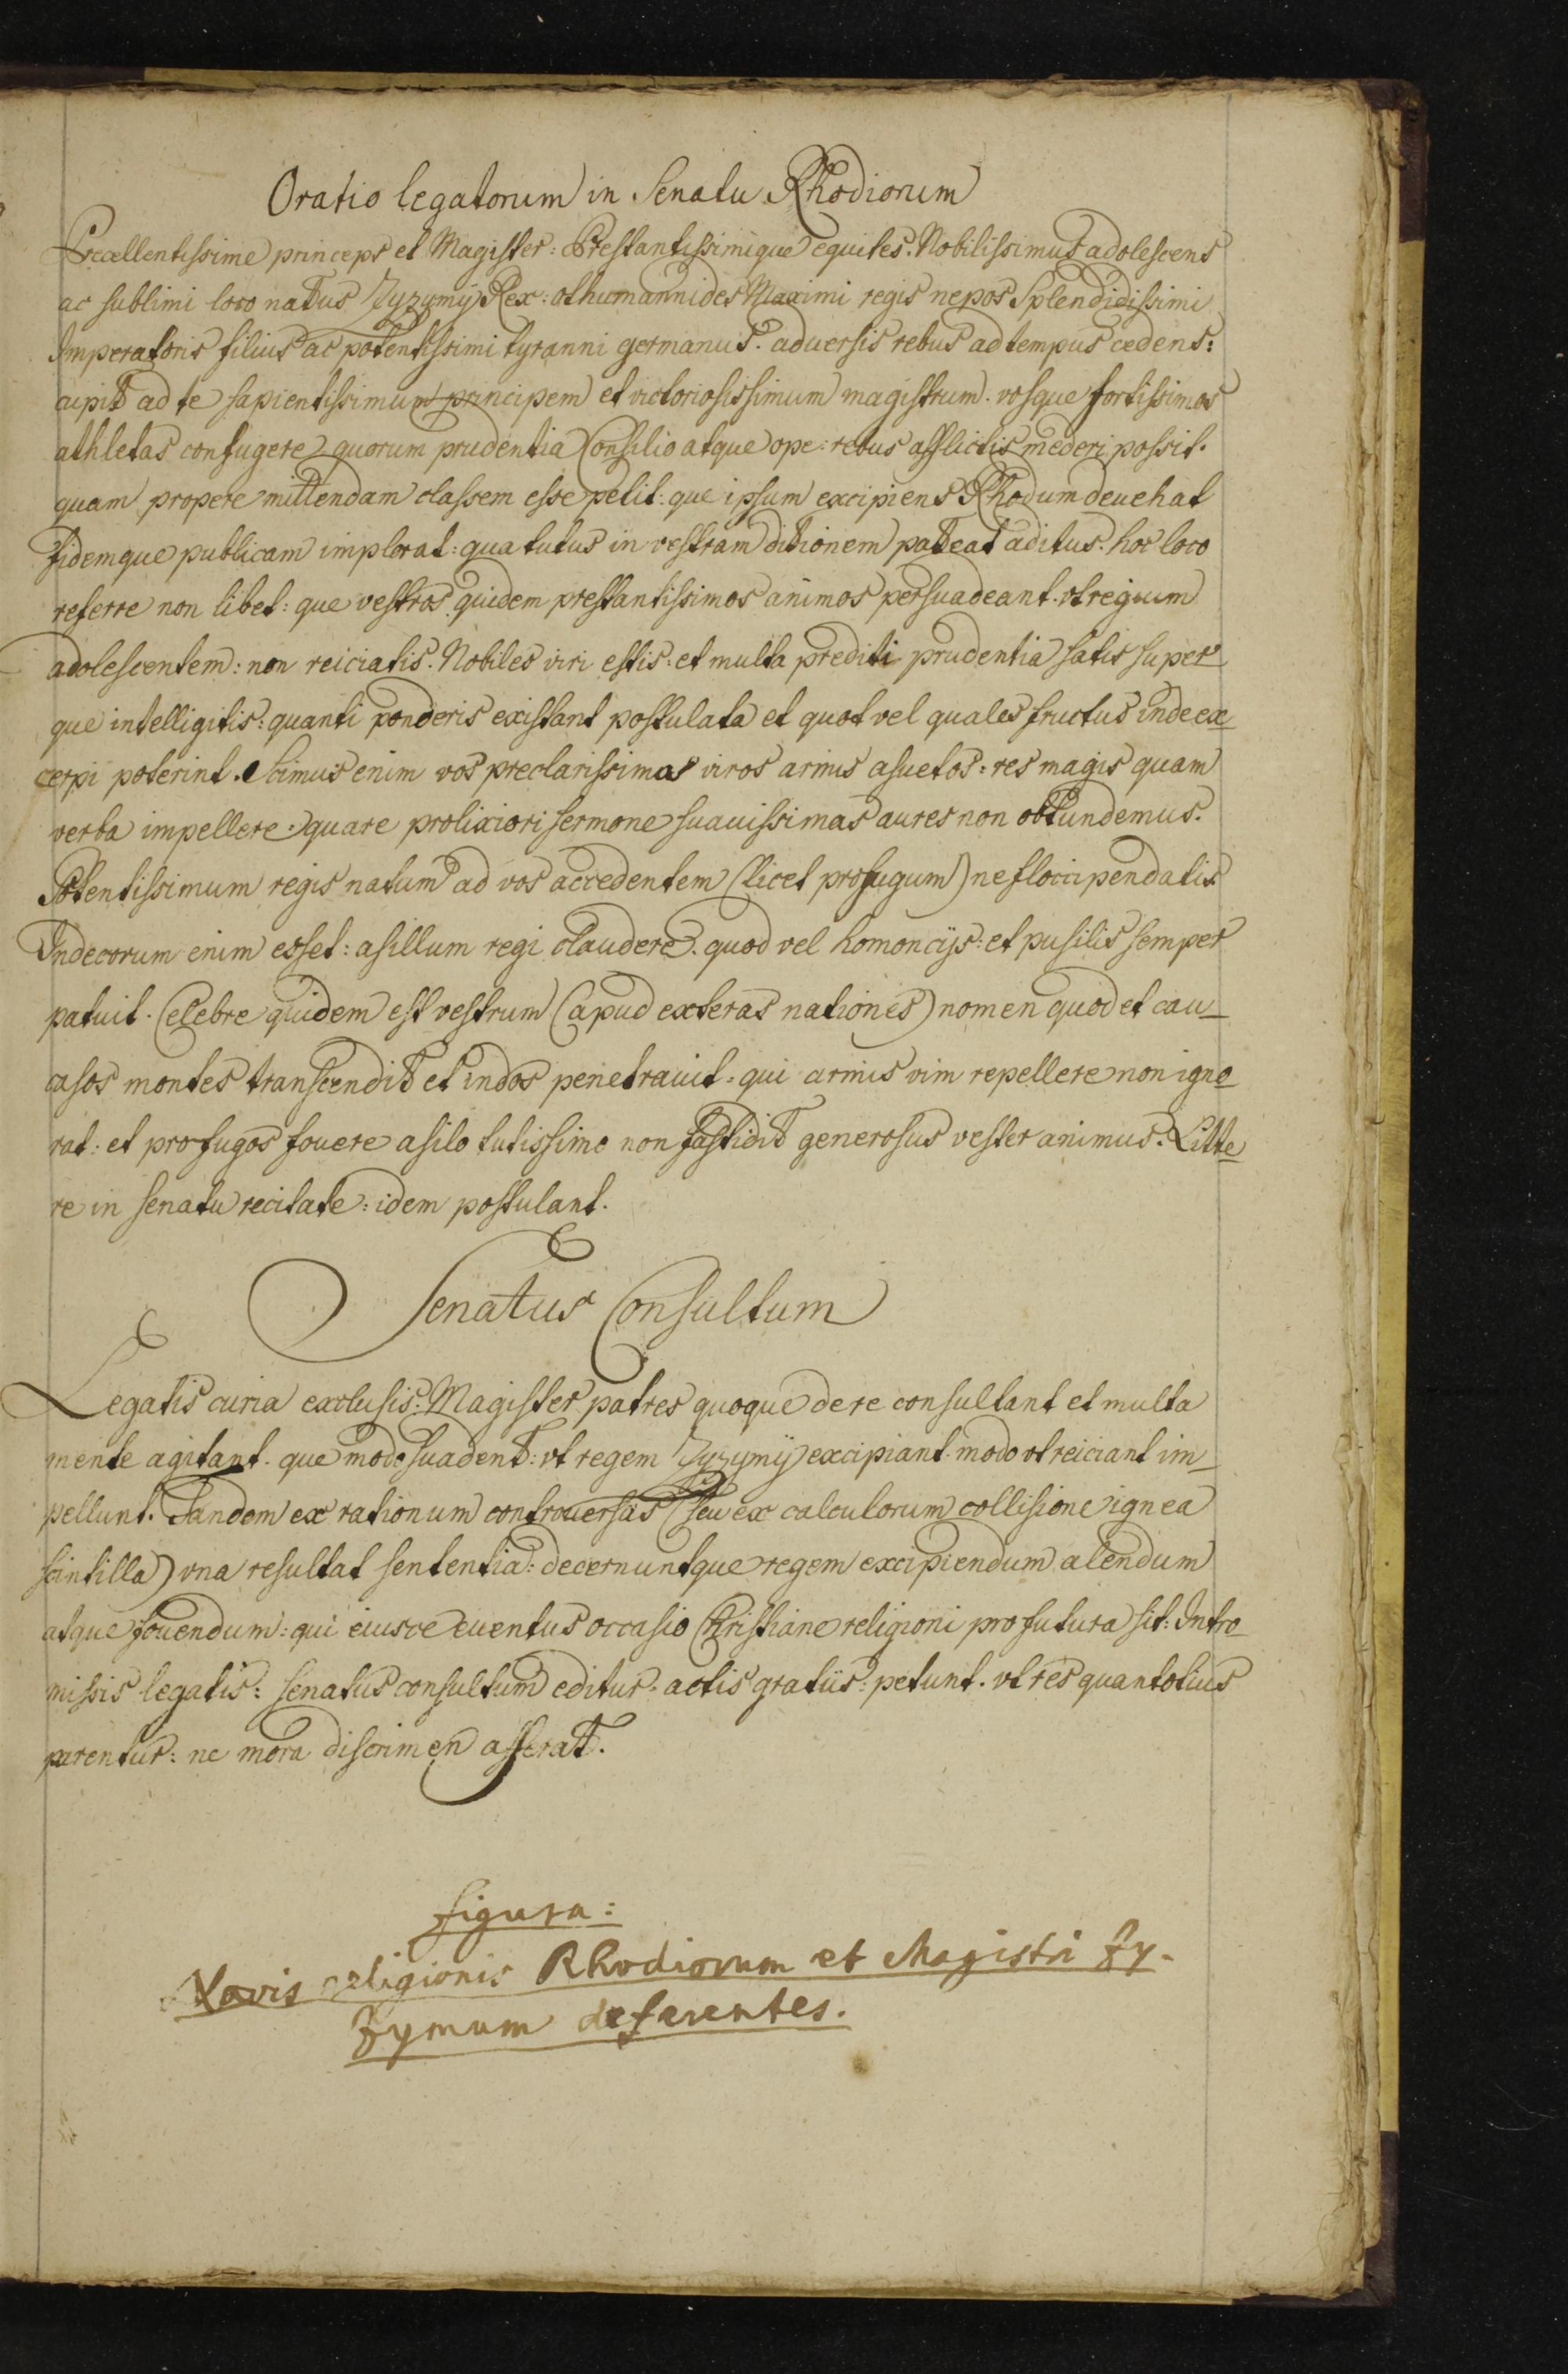 Oratio legatorum in Senatu Rhodiorum
Precellentissime princeps et Magister: Prestantissimique equites. Nobilissimus adolescens
ac sublimi loco natus Zyzymij Rex: othumannides Maximi regis nepos Splendidissimi
Imperatoris filius ac potentissimi tyranni germanus. aduersis rebus ad tempus cedens:
cupit ad te sapientissimum principem et victoriosissimum magistrum. vosque fortissimos
athletas confugere quorum prudentia Consilio atque ope: rebus afflictis mederi possit.
quam propere mittendam classem esse petit: que ipsum excipiens Rhodum deuehat
Fidemque publicam implorat: qua tutus in vestram ditionem pateat aditus. hoc loco
referre non libet: que vestros quidem prestantissimos animos persuadeant. vt regium
adolescentem: non reiciatis. Nobiles viri estis: et multa prediti prudentia satis super
que intelligitis: quanti ponderis existant postulata et quot vel quales fructus inde ex_
cerpi poterint. Scimus enim vos preclarissimos viros armis asuetos: res magis quam
verba impellere: quare prolixiori sermone suauissimas aures non obtundemus.
Potentissimum regis natum ad vos accedentem (licet profugum) ne floccipendatis
Indecorum enim esset: asillum regi claudere. quod vel homoncijs: et pusilis semper
patuit. Celebre quidem est vestrum (apud exteras nationes) nomen quod et cau_
casos montes transcendit et indos penetrauit: qui armis vim repellere non igno_
rat: et profugos fouere asilo tutissimo non fastidit generosus vester animus. Litte_
re in senatu recitate: idem postulant.
Senatus Consultum
Legatis curia exclusis: Magister patres quoque de re consultant et multa
mente agitant. que modo suadent: vt regem Zyzymij excipiant. modo vt reiciant im_
pellunt. Tandem ex rationum controuersiis (seu ex calculorum collisione ignea
scintilla) vna resultat sententia: decernuntque regem excipiendum alendum
atque fouendum: qui eiusce euentus occasio Christiane religioni pro futura sit. Intro_
missis legatis: senatus consultum editur. actis gratiis: petunt. vt res quantotius
parentur: ne mora discrimen afferat.
figura:
Navis religionis Rhodiorum et Magistri Zy-
zymum deferentes.